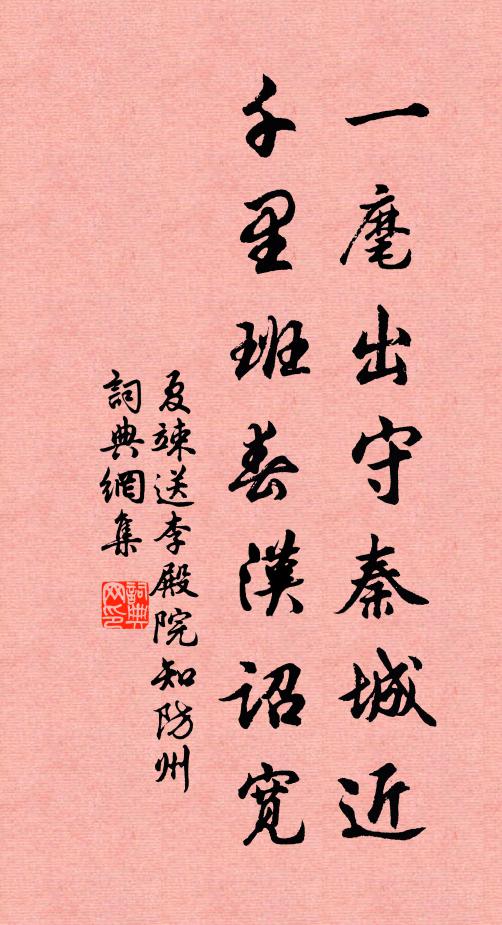 一麾出守秦城近
千里班春漢詔寬
夏竦送李殿院知防州
詞典網集
詞典网印